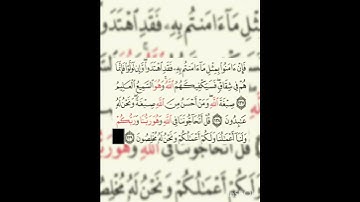 مِثْلِ مَآ ءَامَنتُم بِهِۦ فَقَدِ ٱهْتَدَوا۟
فَإِنْ ءَامَنُوا۟ بِمِثْلِ مَآ ءَامَنتُم بِهِۦ فَقَدِ ٱهْتَدَوا۟ ۖ وَّإِن تَوَلَّوْا۟ فَإِنَّمَا
هُمْ فِى شِقَاقٍ ۖ فَسَيَكْفِيكَهُمُ ٱللَّهُ ۚ وَهُوَ ٱلسَّمِيعُ ٱلْعَلِيمُ
١٣٧ صِبْغَةَ ٱللَّهِ ۖ وَمَنْ أَحْسَنُ مِنَ ٱللَّهِ صِبْغَةً ۖ وَنَحْنُ لَهُۥ
عَـٰبِدُونَ ١٣٨ قُلْ أَتُحَآجُّونَنَا فِى ٱللَّهِ وَهُوَ رَبُّنَا وَرَبُّكُمْ
وَلَنَآ أَعْمَـٰلُنَا وَلَكُمْ أَعْمَـٰلُكُمْ وَنَحْنُ لَهُۥ مُخْلِصُونَ ١٣٩
قُلْ أَتُحَآجُّونَنَا فِى ٱللَّهِ وَهُوَ
أَعْمَـٰلُكُمْ وَنَحْنُ لَهُۥ